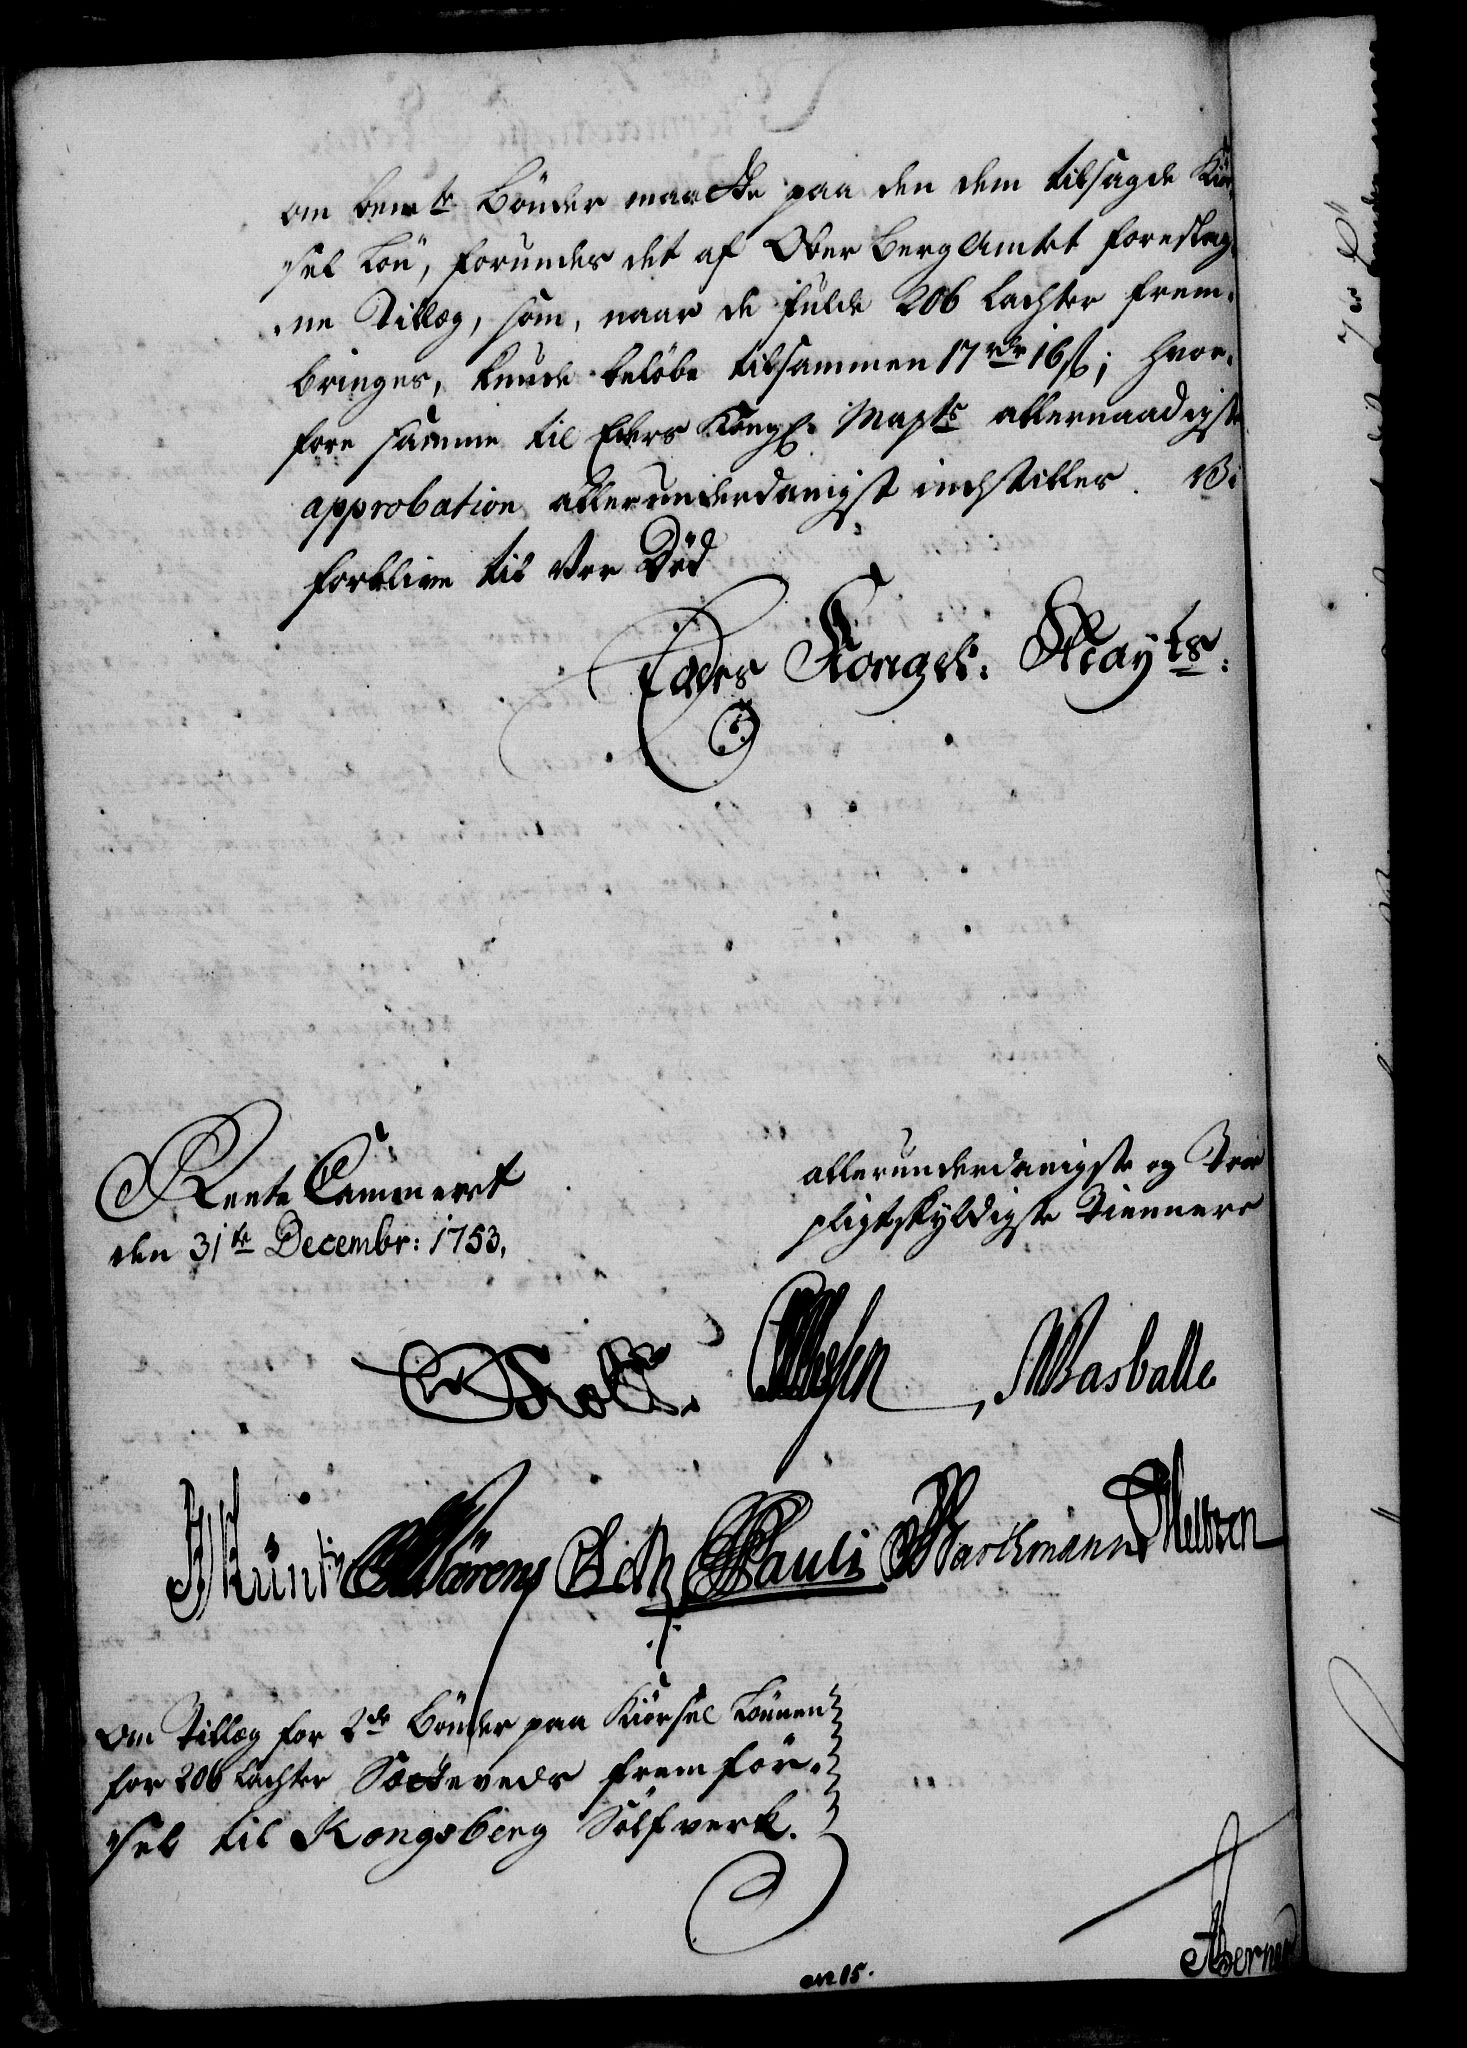 om bem.te Bönder maatte paa den dem tilsagde Kiör-
sel Lön, forundes det af Ober BergAmtet foreslag-
ne Tillæg, som, naar de fulde 206 Lachter frem-
bringes, kunde beløbe tilsammen 17 rdr 16 ß; hvor-
fore samme til Eders Kongl. Mayts allernaadigste
approbation allerunderdanigst indstilles. Vi
forblive til Vor Död
Eders Kongel: Mayts:
Rente Cammeret
den 31te Decembr: 1753.
allerunderdanigste og Troe
pligtskyldigste Tiennere
Holst.
MBasballe
Pauli Barchmann
Om Tillæg for 2de Bönder paa Kiörsel Lönnen
for 206 Lachter Sætteveds fremför-
sel til Kongsberg Sölfverk.
N 15.